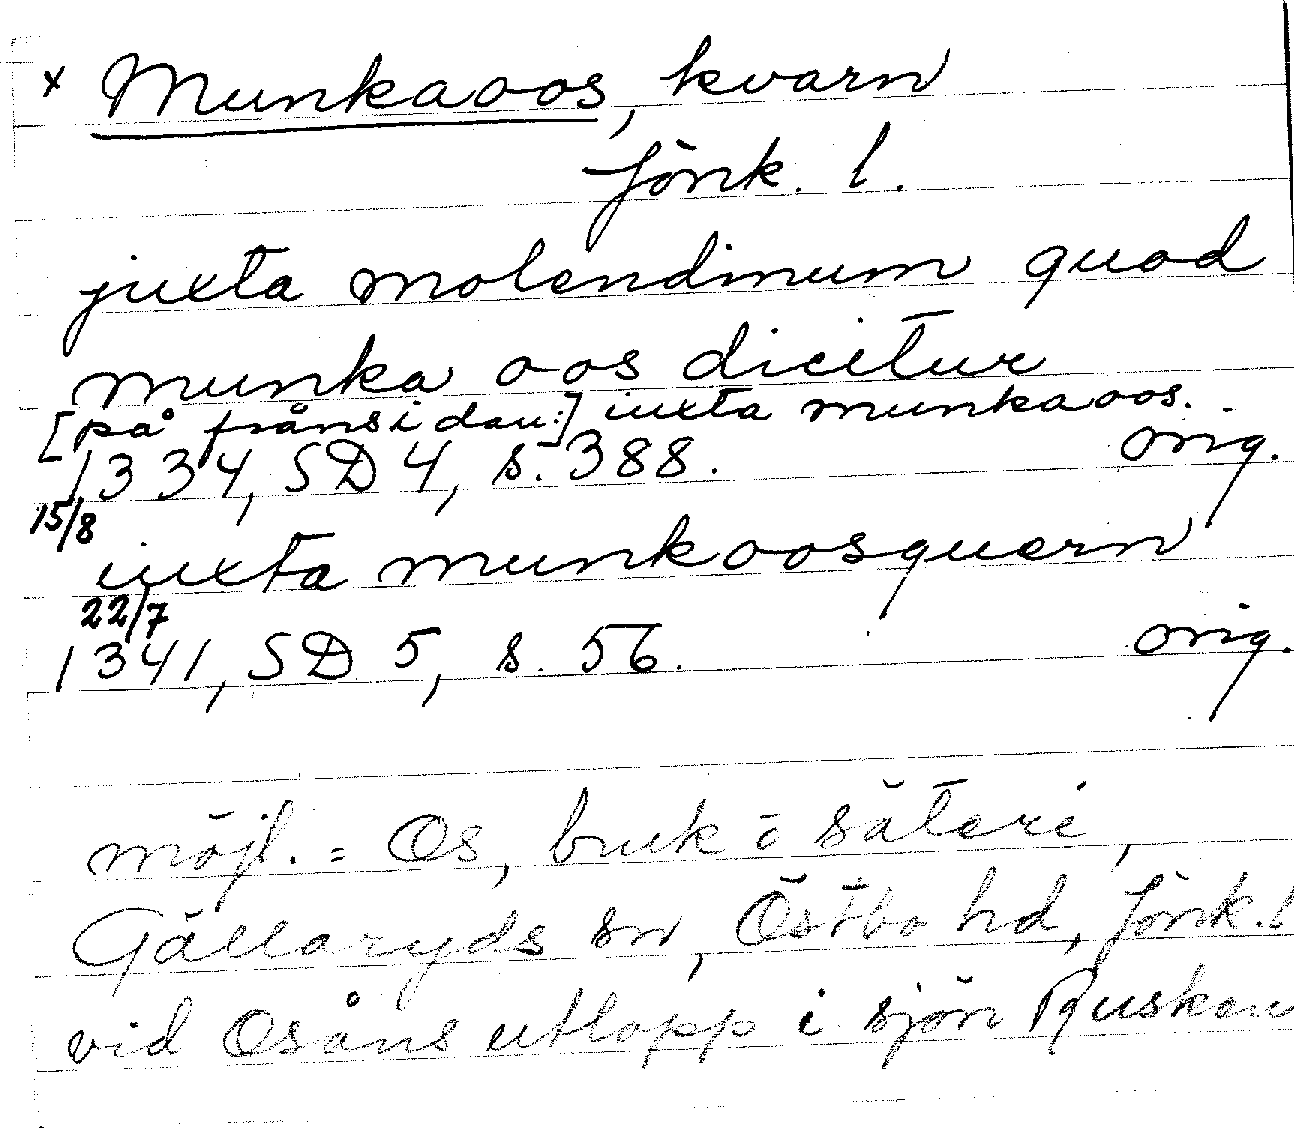 x Munkaoos, kvarn
Jönk. l.
juxta molendinum quod
munka oos dicitur
[på frånsidan:] iuxta munkaoos.
1334, SD 4, s. 388. orig.
15/8
iuxta munkoosquern
22/7
1341, SD 5, s. 56. orig.
möjl. = Os, bruk o säteri,
Gällaryds sn, Östbo hd, Jönk. l
vid Osåns utlopp i sjön Rusken